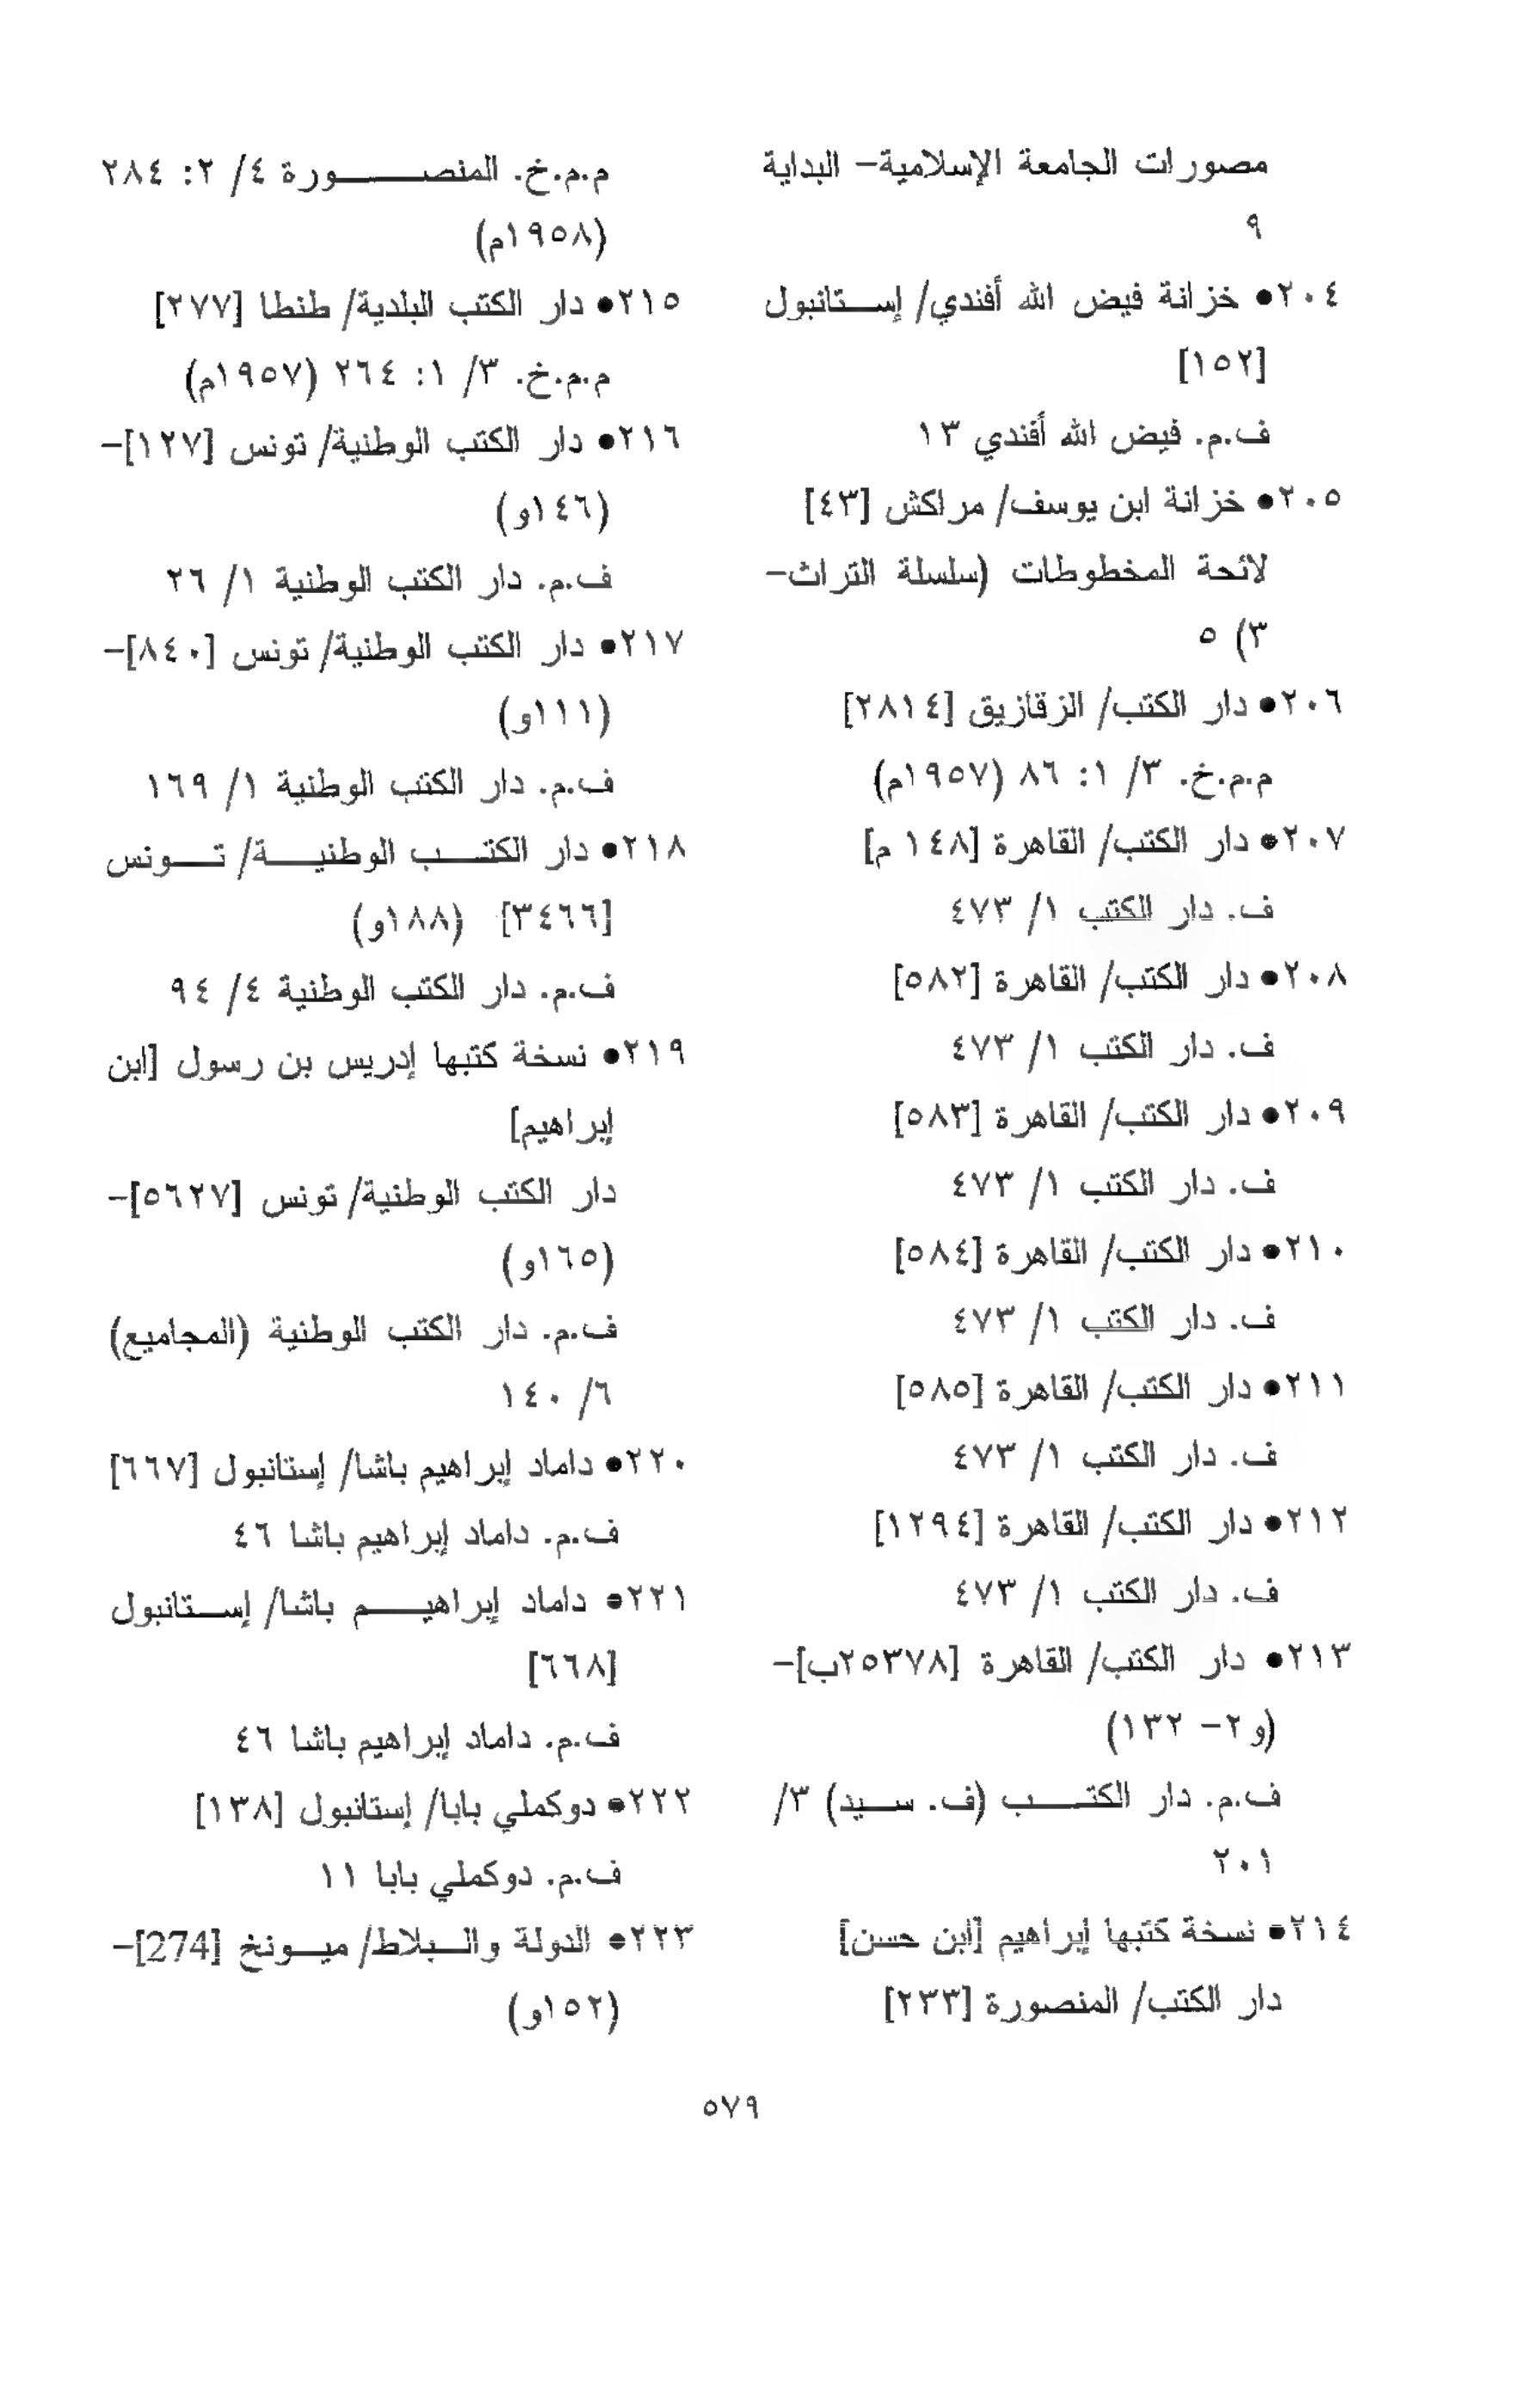 مصورات الجامعة الإسلامية- البداية
٩
٢٠٤● خزانة فيض الله أفندي/ إستانبول
[١٥٢]
ف.م. فيض الله أفندي ١٣
٢٠٥● خزانة ابن يوسف/ مراكش [٤٣]
لائحة المخطوطات (سلسلة التراث-
٣) ٥
٢٠٦● دار الكتب/ الزقازيق [٢٨١٤]
م.م.خ. ٣/ ١: ٨٦ (١٩٥٧م)
٢٠٧● دار الكتب/ القاهرة [١٤٨ م]
ف. دار الكتب ١/ ٤٧٣
٢٠٨● دار الكتب/ القاهرة [٥٨٢]
ف. دار الكتب ١/ ٤٧٣
٢٠٩● دار الكتب/ القاهرة [٥٨٣]
ف. دار الكتب ١/ ٤٧٣
٢١٠● دار الكتب/ القاهرة [٥٨٤]
ف. دار الكتب ١/ ٤٧٣
٢١١● دار الكتب/ القاهرة [٥٨٥]
ف. دار الكتب ١/ ٤٧٣
٢١٢● دار الكتب/ القاهرة [١٢٩٤]
ف. دار الكتب ١/ ٤٧٣
٢١٣● دار الكتب/ القاهرة [٢٥٣٧٨ب]-
(و ٢- ١٣٢)
ف.م. دار الكتب (ف. سيد) ٣/
٢٠١
٢١٤● نسخة كتبها إبراهيم [ابن حسن]
دار الكتب/ المنصورة [٢٣٣]
م.م.خ. المنصورة ٤/ ٢: ٢٨٤
(١٩٥٨م)
٢١٥● دار الكتب البلدية/ طنطا [٢٧٧]
م.م.خ. ٣/ ١: ٢٦٤ (١٩٥٧م)
٢١٦● دار الكتب الوطنية/ تونس [١٢٧]-
(١٤٦و)
ف.م. دار الكتب الوطنية ١/ ٢٦
٢١٧● دار الكتب الوطنية/ تونس [٨٤٠]-
(١١١و)
ف.م. دار الكتب الوطنية ١/ ١٦٩
٢١٨● دار الكتب الوطنية/ تونس
[٣٤٦٦] (١٨٨و)
ف.م. دار الكتب الوطنية ٤/ ٩٤
٢١٩● نسخة كتبها إدريس بن رسول [ابن
إبراهيم]
دار الكتب الوطنية/ تونس [٥٦٢٧]-
(١٦٥و)
ف.م. دار الكتب الوطنية (المجاميع)
٦/ ١٤٠
٢٢٠● داماد إبراهيم باشا/ إستانبول [٦٦٧]
ف.م. داماد إبراهيم باشا ٤٦
٢٢١● داماد إبراهيم باشا/ إستانبول
[٦٦٨]
ف.م. داماد إبراهيم باشا ٤٦
٢٢٢● دوكملي بابا/ إستانبول [١٣٨]
ف.م. دوكملي بابا ١١
٢٢٣● الدولة والبلاط/ ميونخ [274]-
(١٥٢و)
٥٧٩